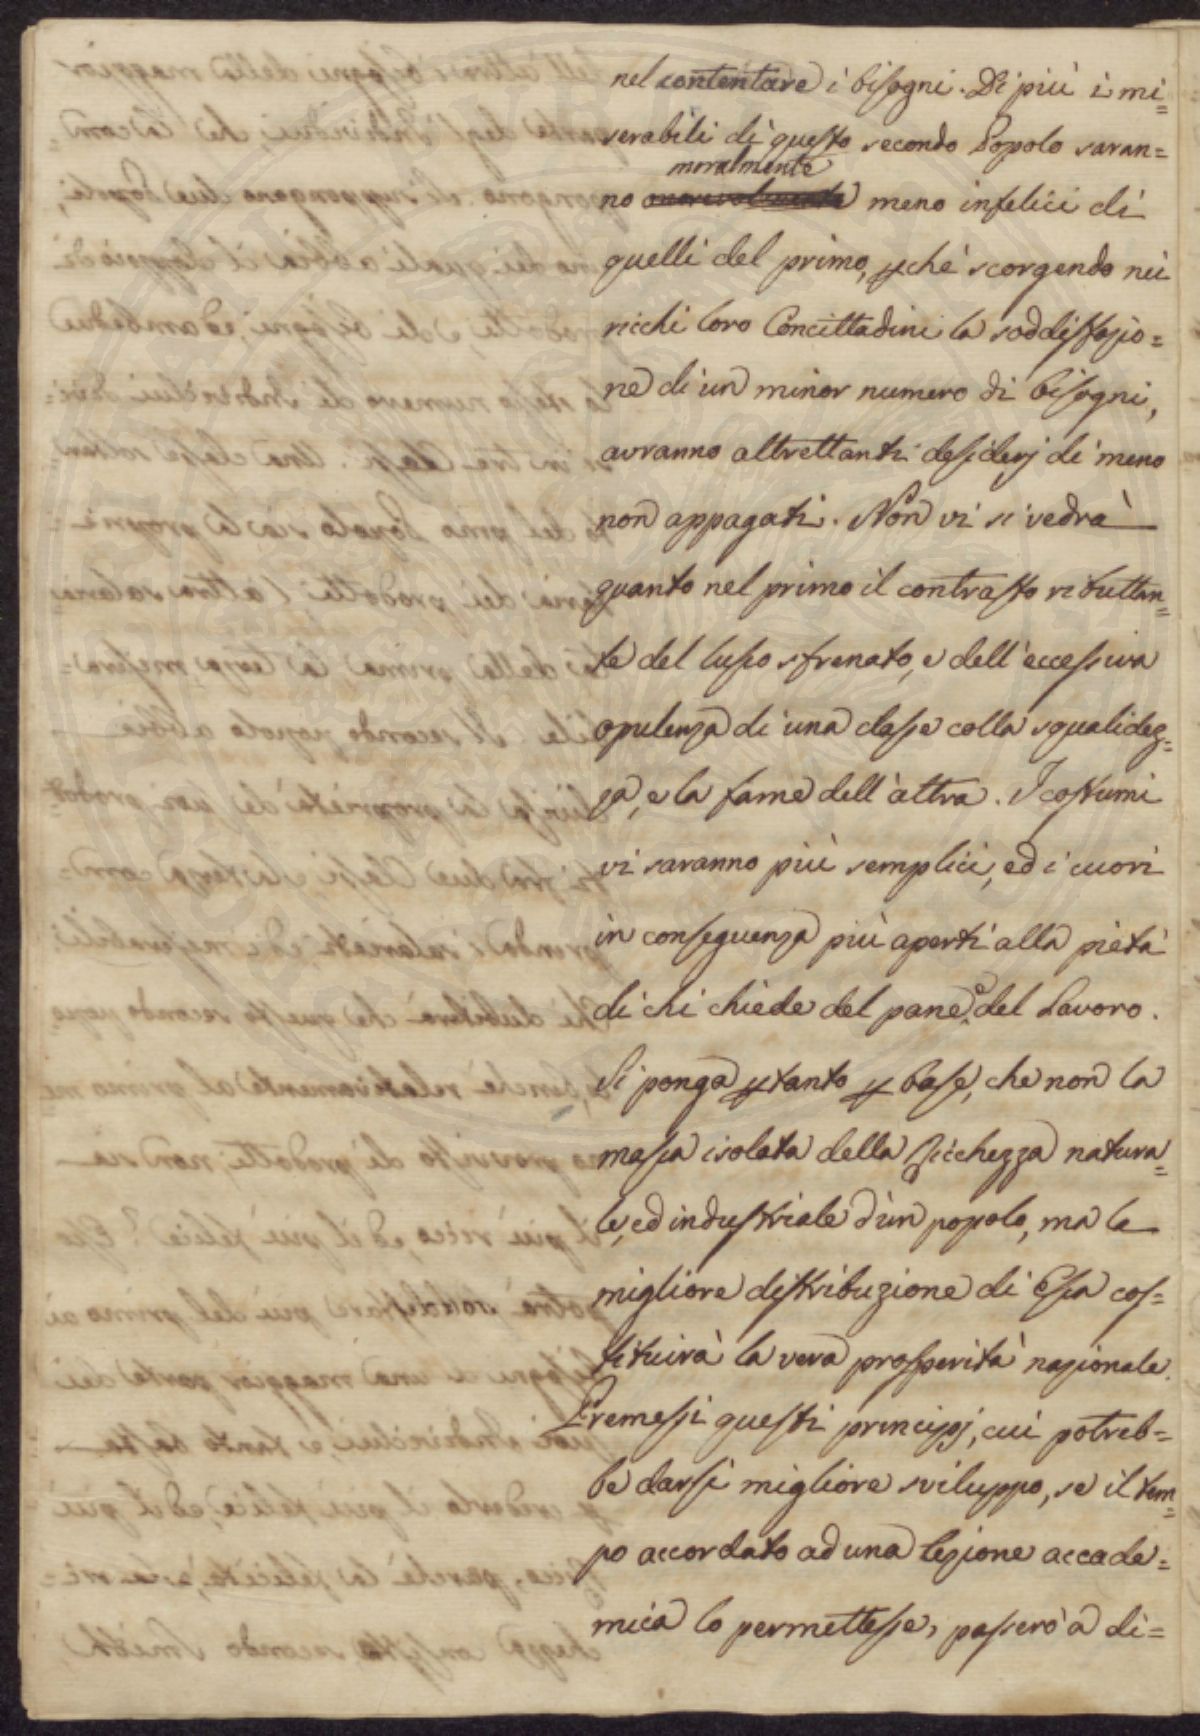 nel contentare i bisogni. Di più i mi=
serabili di questo secondo Popolo saran=
moralmente
no meno infelici di
quelli del primo, pchè scorgendo nei
ricchi loro Concittadini la soddisfazio=
ne di un minor numero di bisogni,
avranno altrettanti desiderj di meno
non appagati. Non vi si vedrà
quanto nel primo il contrasto ributtan=
te del lusso sfrenato, e dell'eccessiva
opulenza di una classe colla squalidez=
za, e la fame dell'altra. I costumi
vi saranno più semplici, ed i cuori
in conseguenza più aperti alla pietà
di chi chiede del pane, e del Lavoro.
Si ponga ptanto p base, che non la
massa isolata della Ricchezza natura=
le, ed industriale d'un popolo, ma la
migliore distribuzione di Essa cos=
tituirà la vera prosperità nazionale.
Premessi questi principj, cui potreb=
be darsi migliore sviluppo, se il tem=
po accordato ad una lezione accade=
mica lo permettesse, passerò a di=